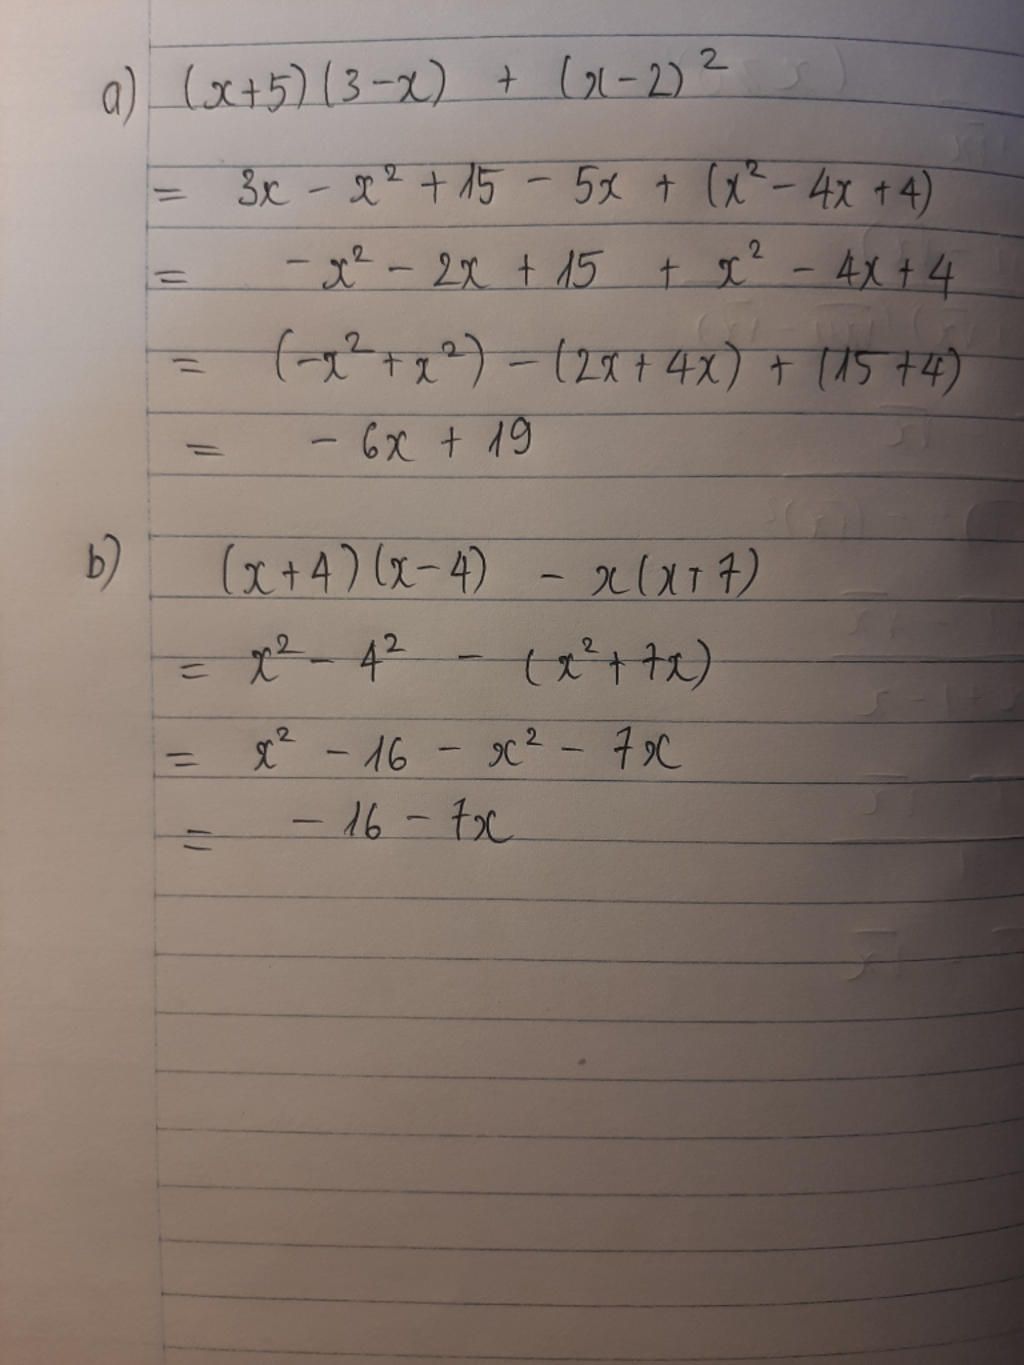 a) (x+5)(3-x) + (x-2)²
= 3x - x² + 15 - 5x + (x² - 4x + 4)
= -x² - 2x + 15 + x² - 4x + 4
= (-x² + x²) - (2x + 4x) + (15 + 4)
= - 6x + 19
b) (x+4)(x-4) - x(x+7)
= x² - 4² - (x² + 7x)
= x² - 16 - x² - 7x
= - 16 - 7x